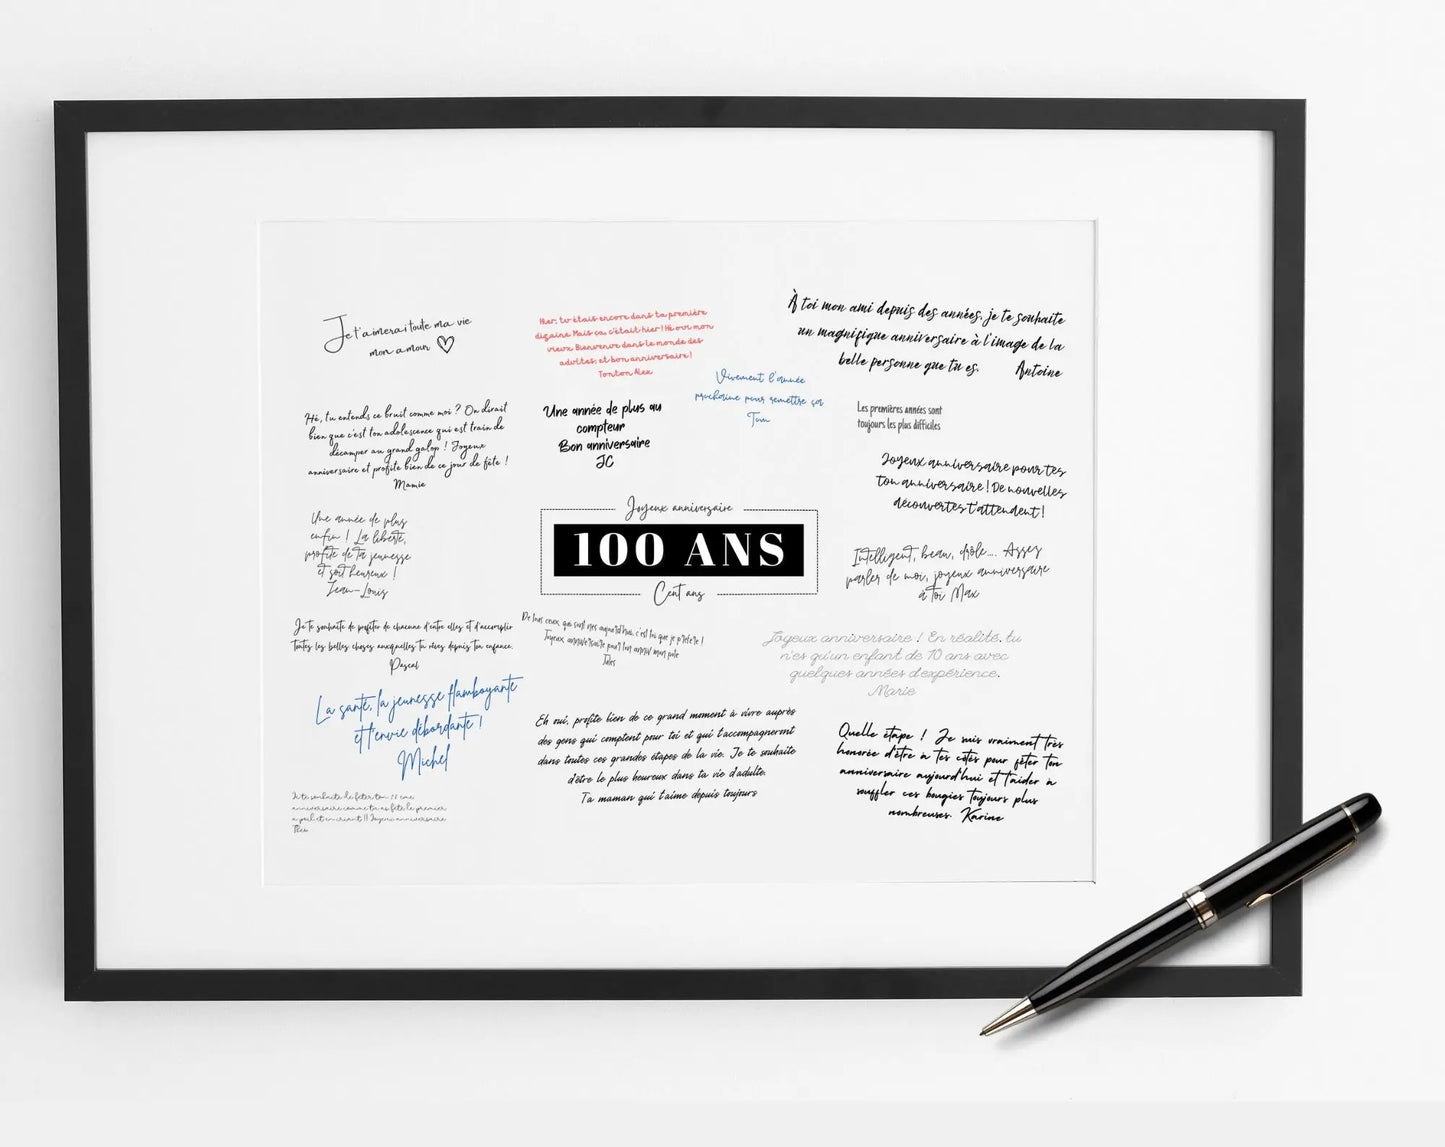 Je t'aimerai toute ma vie
mon amour
Hier, tu étais encore dans ta première
dizaine. Mais ça, c'était hier ! Hé oui mon
vieux. Bienvenue dans le monde des
adultes, et bon anniversaire !
Tonton Alex
À toi mon ami depuis des années, je te souhaite
un magnifique anniversaire à l'image de la
belle personne que tu es. Antoine
Vivement l'année
prochaine pour remettre ça
Tom
Hé, tu entends ce bruit comme moi ? On dirait
bien que c'est ton adolescence qui est train de
décamper au grand galop ! Joyeux
anniversaire et profite bien de ce jour de fête !
Mamie
Une année de plus au
compteur
Bon anniversaire
JC
Les premières années sont
toujours les plus difficiles
Joyeux anniversaire pour tes
ton anniversaire ! De nouvelles
découvertes t'attendent !
Une année de plus
enfin ! La liberté,
profite de ta jeunesse
et soit heureux !
Jean-Louis
Joyeux anniversaire
100 ANS
Cent ans
Intelligent, beau, drôle.... Assez
parler de moi, joyeux anniversaire
à toi Max
Je te souhaite de profiter de chacune d'entre elles et d'accomplir
toutes les belles choses auxquelles tu rêves depuis ton enfance.
Pascal
De tous ceux, qui sont nés aujourd'hui, c'est toi que je préfère !
Joyeux anniversaire pour ton anniv mon pote
Jules
Joyeux anniversaire ! En réalité, tu
n'es qu'un enfant de 10 ans avec
quelques années d'expérience.
Marie
La santé, la jeunesse flamboyante
et l'envie débordante !
Michel
Eh oui, profite bien de ce grand moment à vivre auprès
des gens qui comptent pour toi et qui t'accompagneront
dans toutes ces grandes étapes de la vie. Je te souhaite
d'être le plus heureux dans ta vie d'adulte.
Ta maman qui t'aime depuis toujours
Quelle étape ! Je suis vraiment très
honorée d'être à tes côtés pour fêter ton
anniversaire aujourd'hui et t'aider à
souffler ces bougies toujours plus
nombreuses. Karine
Je te souhaite de fêter ton
anniversaire comme tu as fêté le premier
à poil et en criant !! Joyeux anniversaire